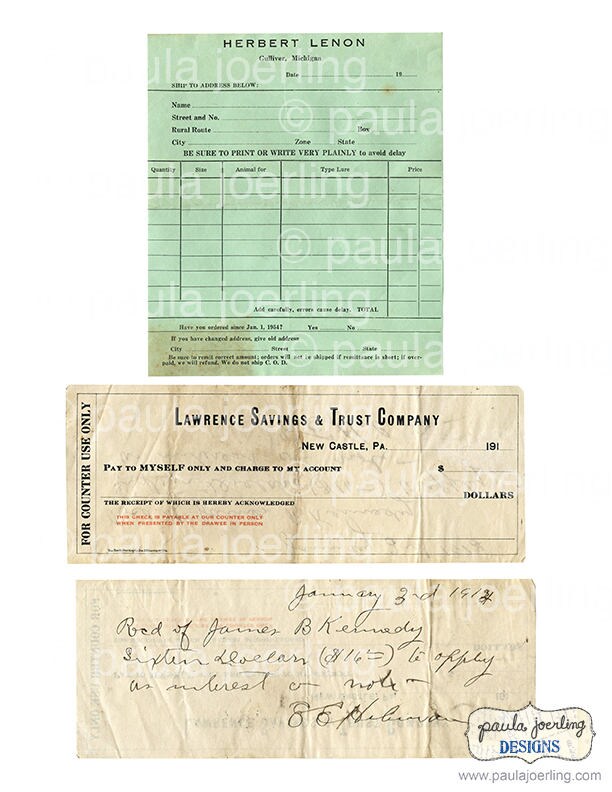 HERBERT LENON
Gulliver, Michigan
Date 19
SHIP TO ADDRESS BELOW:
Name
Street and No.
Rural Route Box
City Zone State
BE SURE TO PRINT OR WRITE VERY PLAINLY to avoid delay
Quantity Size Animal for Type Lure Price
Add carefully, errors cause delay. TOTAL
Have you ordered since Jan. 1, 1954? Yes No
If you have changed address, give old address
City Street State
Be sure to remit correct amount; orders will not be shipped if remittance is short; if over-
paid, we will refund. We do not ship C. O. D.
© paula joerling
FOR COUNTER USE ONLY
LAWRENCE SAVINGS & TRUST COMPANY
NEW CASTLE, PA. 191
PAY TO MYSELF ONLY AND CHARGE TO MY ACCOUNT $
DOLLARS
THE RECEIPT OF WHICH IS HEREBY ACKNOWLEDGED
THIS CHECK IS PAYABLE AT OUR COUNTER ONLY
WHEN PRESENTED BY THE DRAWEE IN PERSON
January 3rd 1914
Recd of James B Kennedy
Sixteen Dollars ($16=) to apply
as interest on note
paula joerling
DESIGNS
www.paulajoerling.com